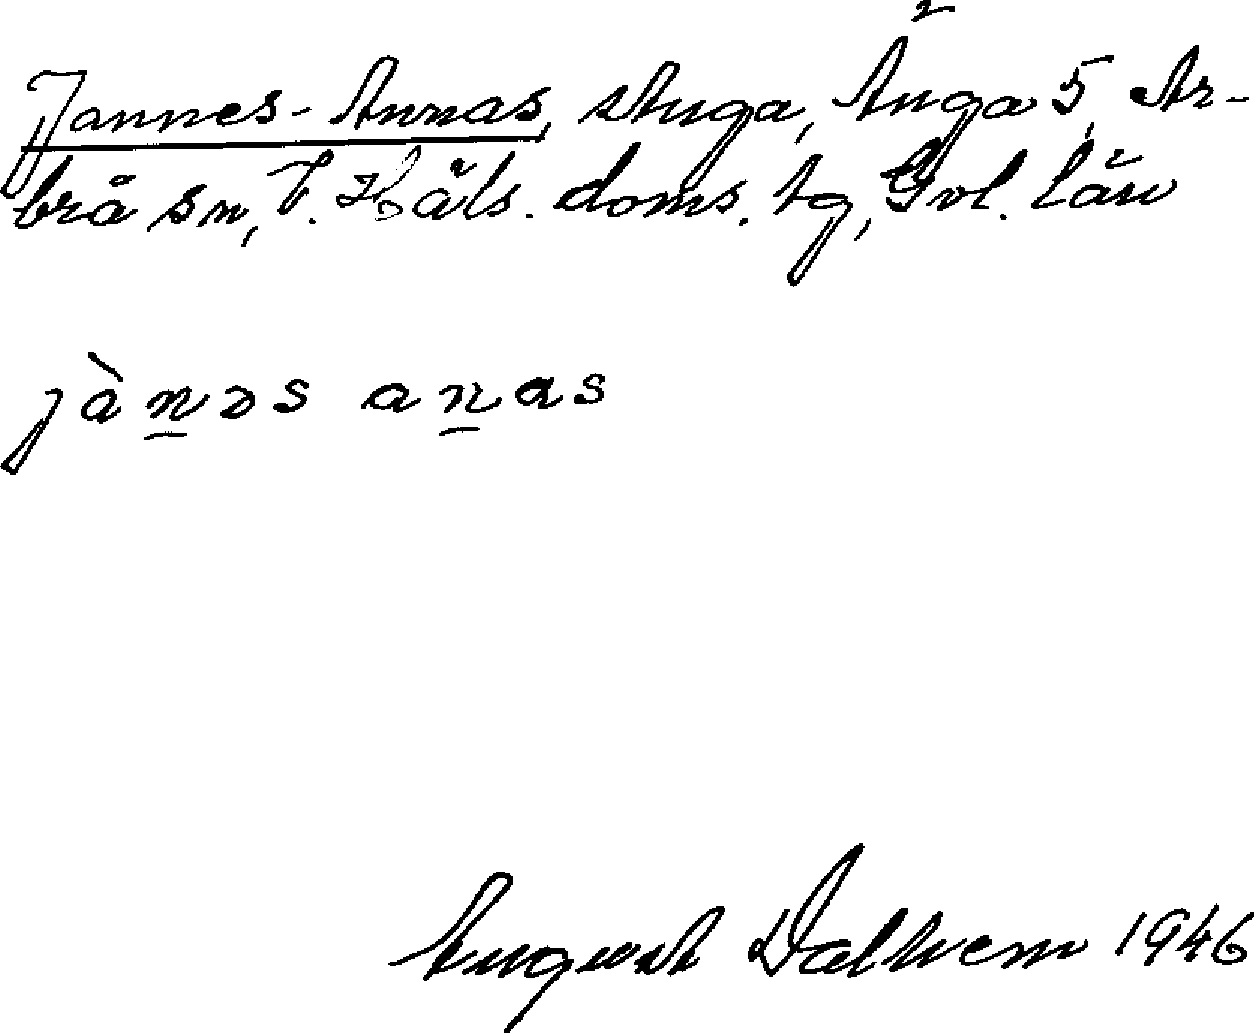 Jannes-Annas, stuga, Änga 5, Ar-
brå sn, V. Häls. doms. tg, Gvl. län
jànəs anas
August Dalhem 1946